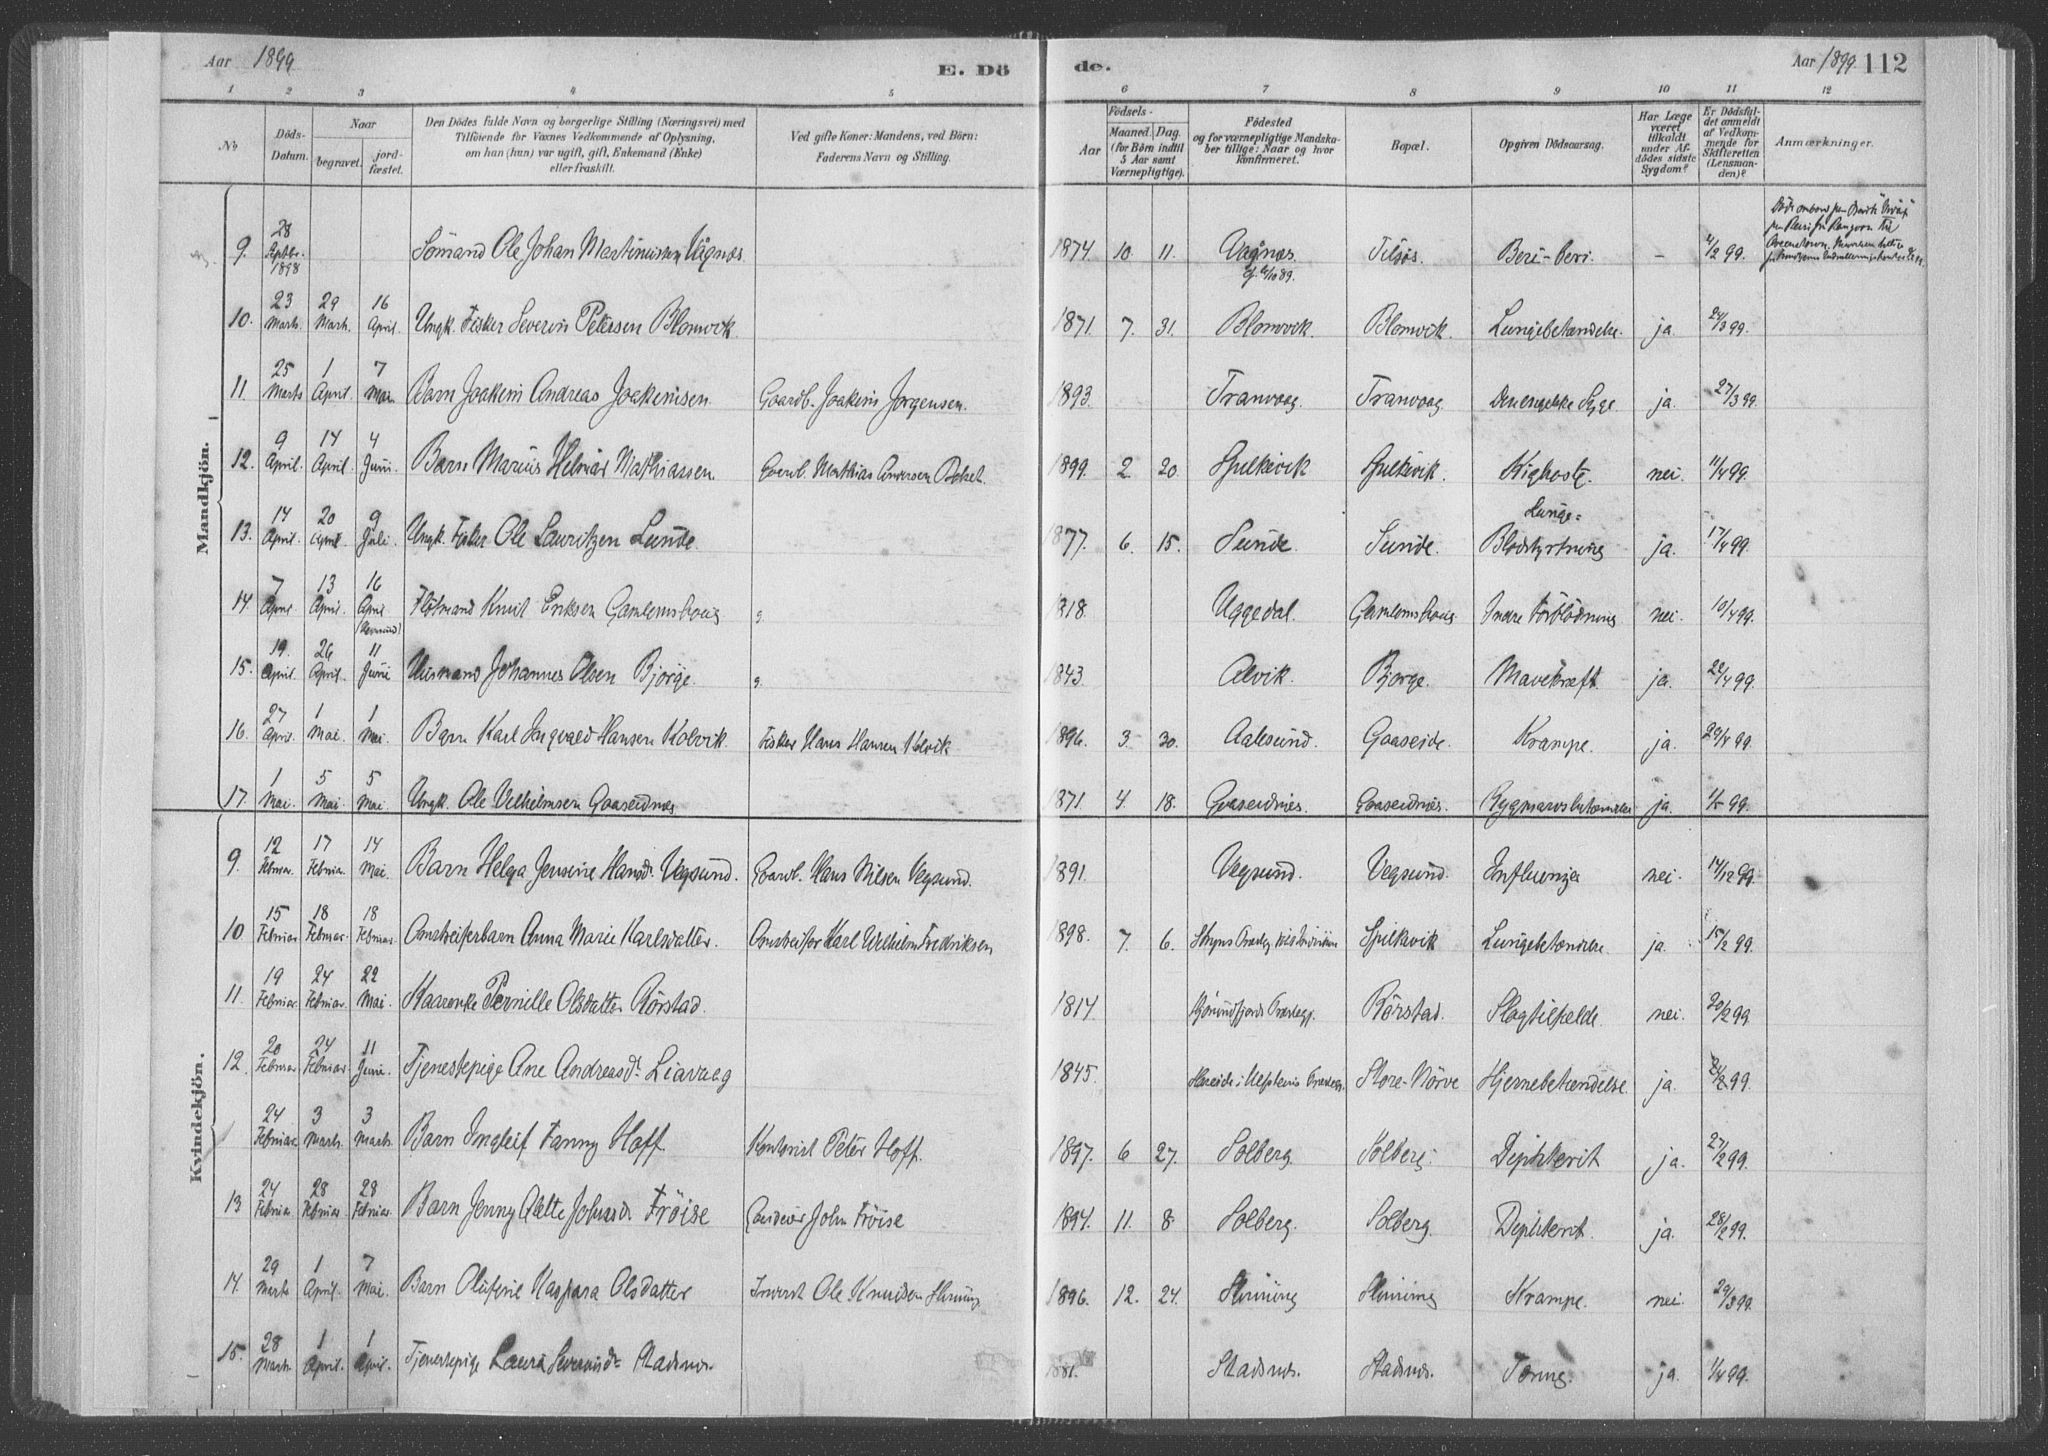 Aar 1899
E. Dö
de.
Aar 1899.
112
1 2 3 4 5 6 7 8 9 10 11 12
No
Döds-Datum.
Naar
begravet.
jord-fæstet.
Den Dödes fulde Navn og borgerlige Stilling (Næringsvei) med
Tilföiende for Voxnes Vedkommende af Oplysning,
om han (hun) var ugift, gift, Enkemand (Enke)
eller fraskilt.
Ved gifte Koner: Mandens, ved Börn:
Faderens Navn og Stilling.
Födsels-
Aar
Maaned. Dag.
(for Börn indtil
5 Aar samt
Værnepligtige).
Födested
og for værnepligtige Mandska-
ber tillige: Naar og hvor
Konfirmeret.
Bopæl.
Opgiven Dödsaarsag.
Har Læge
været
tilkaldt
under Af-
dödes sidste
Sygdom?
Er Dödsfal-
det anmeldt
af Vedkom-
mende for
Skifteretten
(Lensman-
den)?
Anmærkninger.
Mandkjön.
9. 28 Septbr. 1898 Sömand Ole Johan Martinussen Vågnæs 1874 10. 11. Vågnæs Tilsjös. Beri-beri. - 4/2 99.
10. 23 Marts. 29 Marts. 16 April. Ungk. Fisker Severin Petersen Blomvik. 1871. 7. 31. Blomvik. Blomvik. Lungebetændelse. ja. 24/3 99.
11. 25 Marts 1 April. 7 Mai Barn Joakim Andreas Joakimsen Gaardb. Joakim Jørgensen. 1893. Tranvaag. Tranvaag. Den engelske Syge ja. 27/3 99.
12. 9 April. 14 April. 4 Juni. Barn Marius Helmar Mathiassen. Gaardb. Matthias Andersen 1899. 2. 20. Spilkevik Spilkevik. Kighoste. nei. 11/4 99.
13. 14 April. 20 April 9 Juli. Ungk. Fisker Ole Lauritzen Sunde. 1877. 6. 15. Sunde. Sunde. Lunge= Blodstyrtning ja. 17/4 99.
14. 7 April 13 April. 16 April Knut Eriksen Gamlemshaug g. 1818. Uggedal. Gamlemshaug. Indre Forblødning nei. 10/4 99.
15. 19. April. 26 April. 11 Juni Husmand Johannes Olsen Bjørge. g. 1843. Alvik. Bjørge. Mavekræft. ja. 22/4 99.
16. 27 April. 1 Mai. 1 Mai. Barn Karl Ingvald Hansen Kolvik. Fisker Hans Hansen Kolvik 1896. 3. 30. Aalesund. Gaaseide. Krampe. ja. 29/4 99.
17. 1 Mai. 5 Mai 5 Mai Ungk. Ole Vilhelmsen Gaaseidnes 1871. 4. 18. Gaaseidnes. Gaaseidnes. Rygmarvsbetændelse ja. 1/5 99.
Kvindekjön.
9. 12 Februar. 17 Februar. 14 Mai. Barn Helga Jensine Hansd. Vegsund. Gaardb. Hans Nilsen Vegsund. 1891. Vegsund. Vegsund. Influenza nei. 14/12 99
10. 15 Februar 18 Februar. 18 Februar. Omstreiferbarn Anna Marie Karlsdatter. Omstreifer Karl Wilhelm Fredriksen 1898. 7. 6. Spilkevik Lungebetændelse. ja. 15/2 99.
11. 19 Februar. 24 Februar. 22 Mai. Kaarenke Pernille Olsdatter Rørstad. 1814. Hjørundfjords Præstegj. Rørstad. Slagtilfælde. nei. 20/2 99
12. 20 Februar 24 Februar. 11 Juni. Tjenestepige Ane Andreasd. Liavaag 1845. Hareide i Ulfstens Præstegj. Store-Nörve Hjernebetændelse. ja. 99.
24 Februar 3 Marts. 3 Marts. Barn Ingleif Fanny Hoff. Kontorist Peter Hoff. 1897. 6 27. Solberg. Solberg. Diphterit ja. 27/2 99.
13 24 Februar. 28 Februar. 28 Februar. Barn Jenny Alette Johnsd. Fröise John Fröise 1894. 11. 8. Solberg. Solberg. Diphterit. ja. 28/2 99.
14. 29 Marts 1 April. 7 Mai. Barn Olufine Kaspara Olsdatter Inderst Ole Knudsen Humning. 1896. 12. 24. Humning Humning Krampe. nei. 29/3 99.
15. 28 Marts 1 April. 1 April. Tjenestepige Laura Severinsd. Stadsnes. 1881. Stadsnes. Stadsnes. Tæring. ja. 1/4 99.